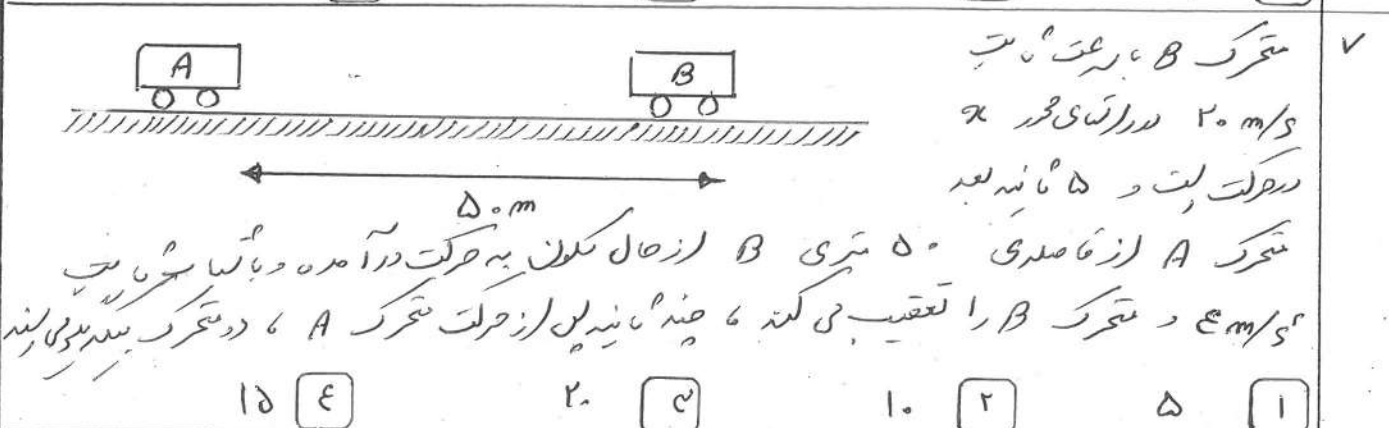 ۷
متحرک B با سرعت ثابت
A
B
۲۰ m/s در راستای محور x
در حرکت است و ۵ ثانیه بعد
۵۰m
متحرک A از فاصله‌ی ۵۰ متری B از حال سکون به حرکت درآمده و با شتاب ثابت
۴ m/s² و متحرک B را تعقیب می کند، چند ثانیه پس از حرکت متحرک A، دو متحرک بیکدیگر می رسند
۱ ۵ ۲ ۱۰ ۳ ۲۰ ۴ ۱۵